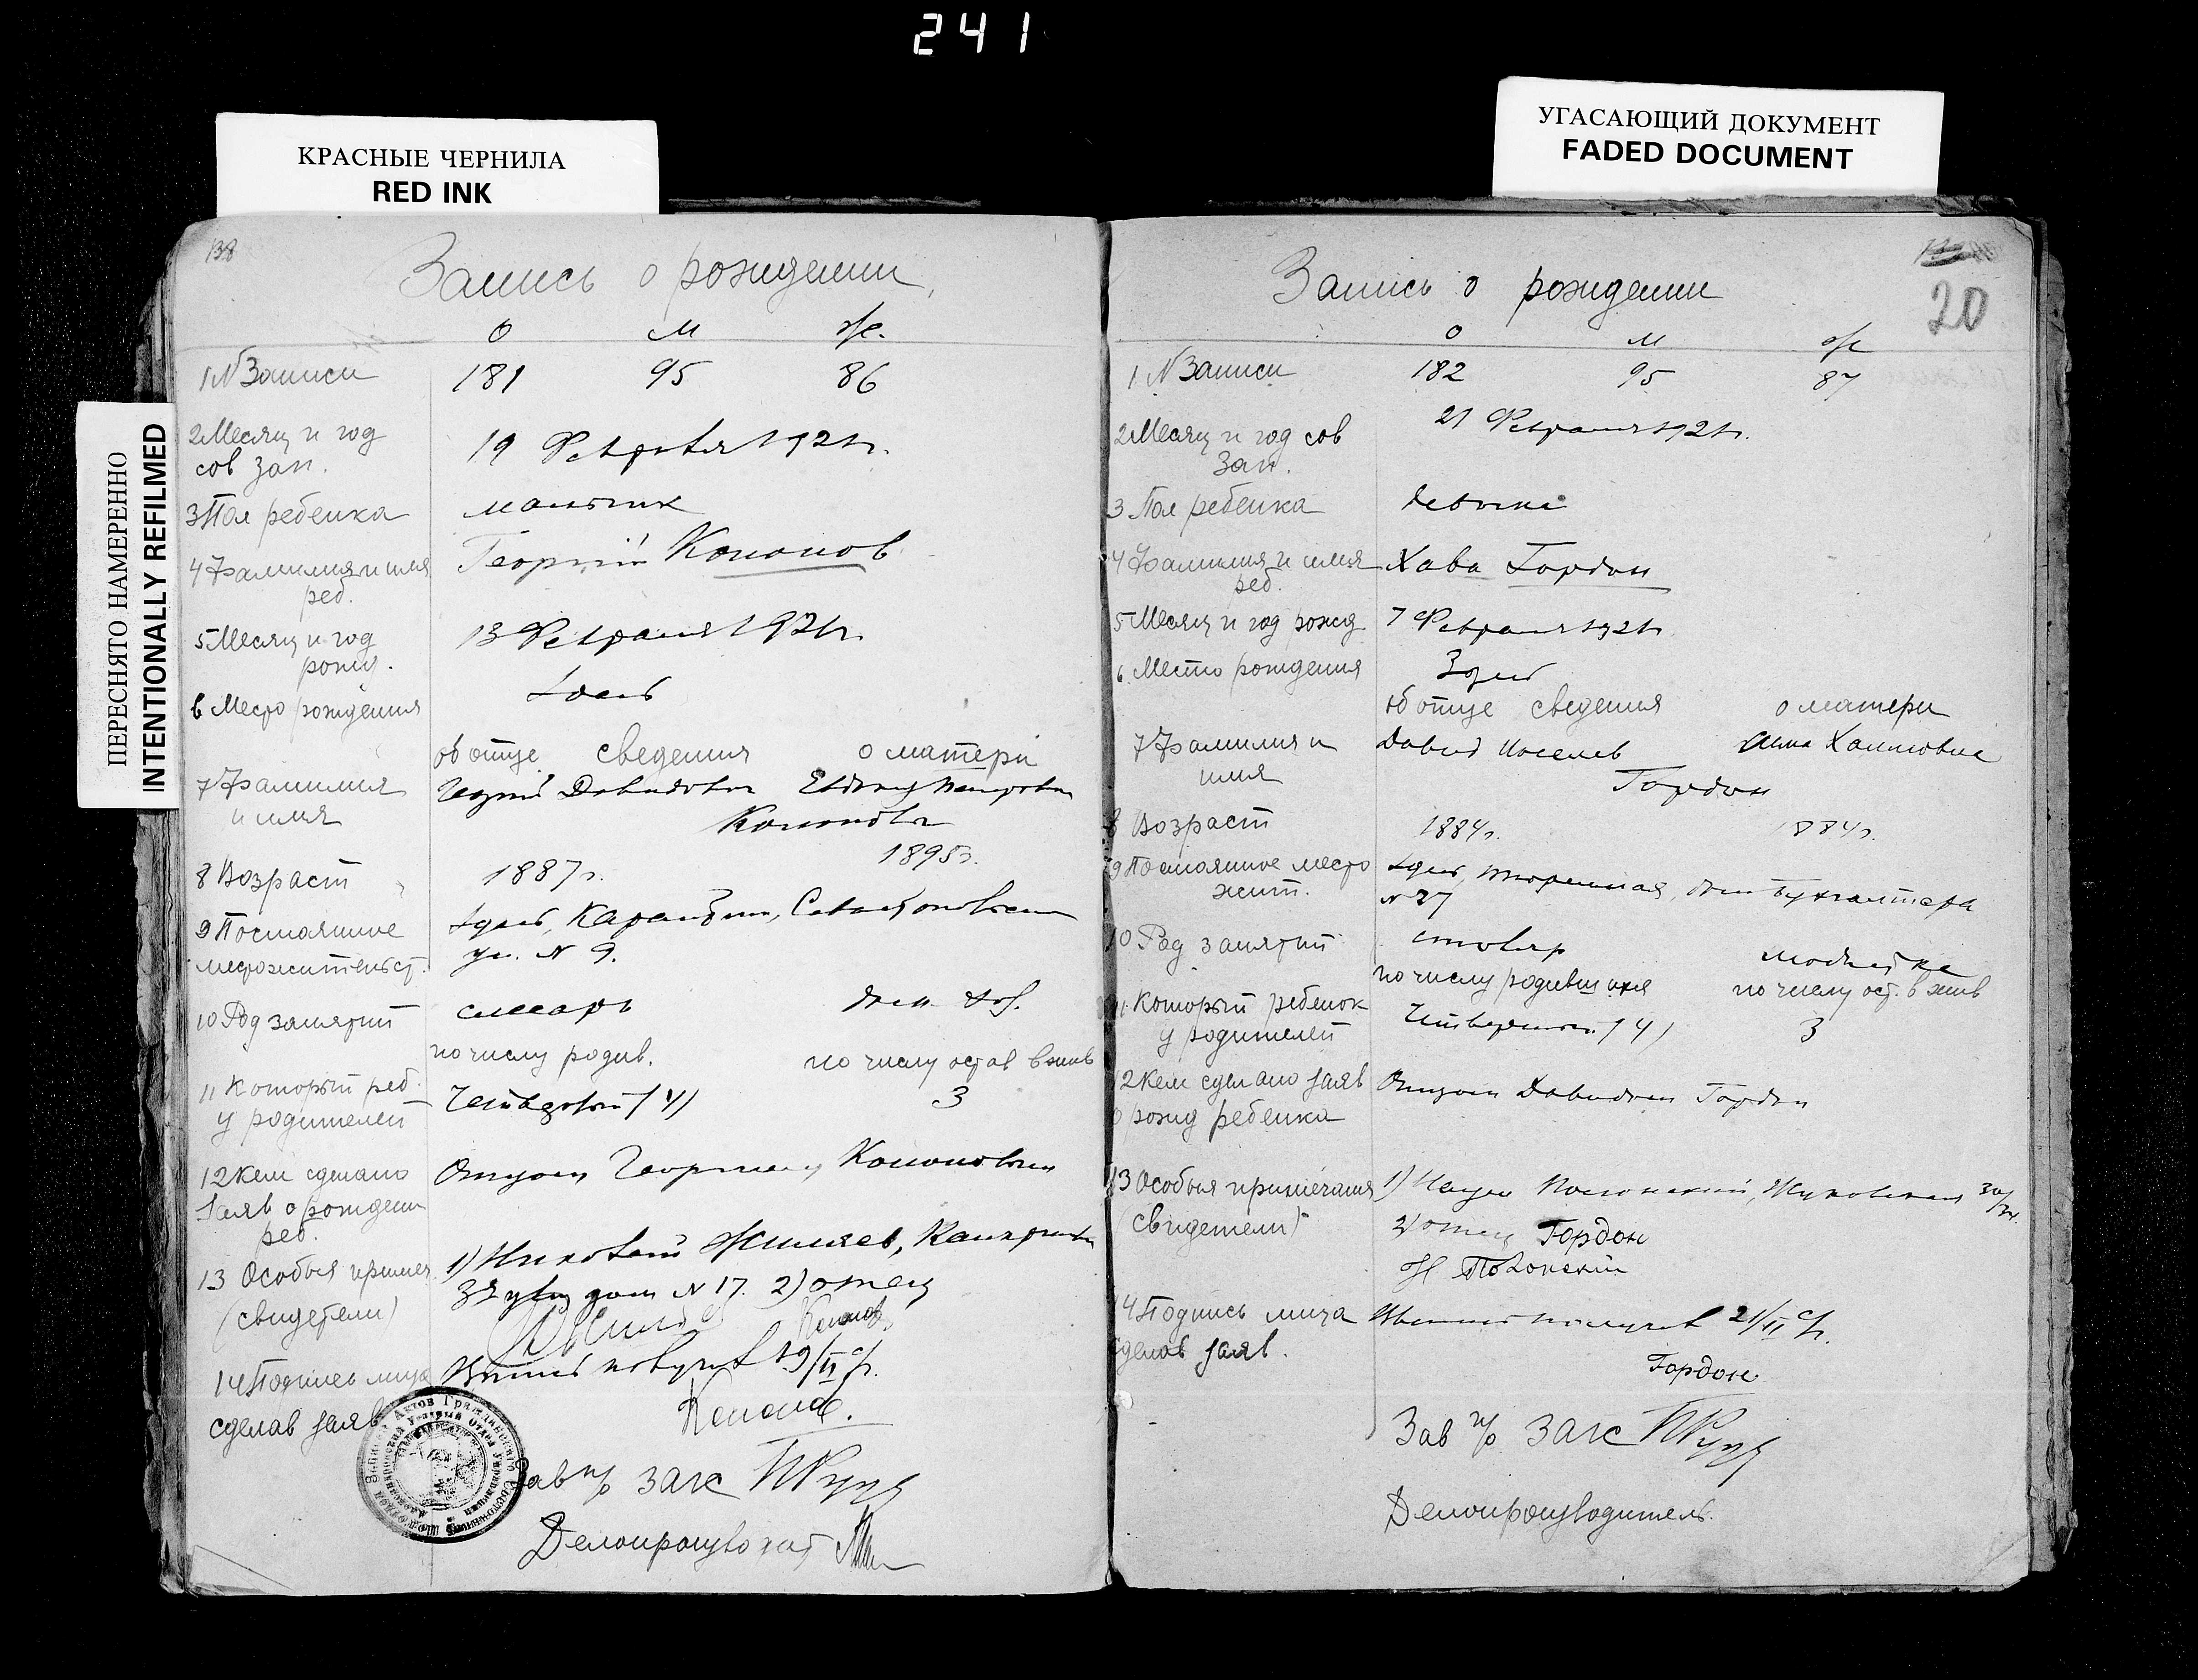 241
КРАСНЫЕ ЧЕРНИЛА
RED INK
УГАСАЮЩИЙ ДОКУМЕНТ
FADED DOCUMENT
ПЕРЕСНЯТО НАМЕРЕННО
INTENTIONALLY REFILMED
138
Запись о рождении
о м ж.
1 N Записи 181 95 86
2 Месяц и год 19 Февраля 1921 г.
сов зап.
3 Пол ребенка мальчик
4 Фамилия и имя Георгий Кононов
реб.
5 Месяц и год 13 Февраля 1921 г.
рожд.
6 Место рождения Здесь
об отце сведения о матери
7 Фамилия Георгий Давидович Евдокия Петровна
и имя Кононовы
8 Возраст 1887 г. 1895 г.
9 Постоянное Здесь, Карантин,
местожительст. ул. N 9.
10 Род занятий слесарь дом. хоз.
по числу родив. по числу остав в жив
11 Который реб. Четвертый (4) 3
у родителей
12 Кем сделано Отцом Георгием Кононовым
Заяв о рождении
реб.
13 Особыя примеч 1)
(свидетели) дом N 17. 2) отец
Кононов
14 Подпись лица получил 19/II с/г.
сделав заяв Кононов.
Зав п/о ЗАГС
Делопроизводит
20
Запись о рождении
о м ж
1 N Записи 182 95 87
2 Месяц и год сов 21 Февраля 1921 г.
зап.
3 Пол ребенка девочка
4 Фамилия и имя Хава Гордон
реб.
5 Месяц и год рожд 7 Февраля 1921 г.
6 Место рождения Здесь
об отце сведения о матери
7 Фамилия и Давид Иоселев Анна Хаимовна
имя Гордон
8 Возраст 1884 г. 1884 г.
9 Постоянное место Здесь, дом Бухгалтера
жит. N 27
10 Род занятий столяр модистка
по числу родившихся по числу ост. в жив
11 Который ребенок Четвертый (4) 3
у родителей
12 Кем сделано заяв Отцом Давидом Гордон
о рожд ребенка
13 Особыя примечания 1)
(свидетели) 2) отец Гордон
14 Подпись лица получил 21/II с/г.
сделав заяв. Гордон
Зав п/о ЗАГС
Делопроизводитель.